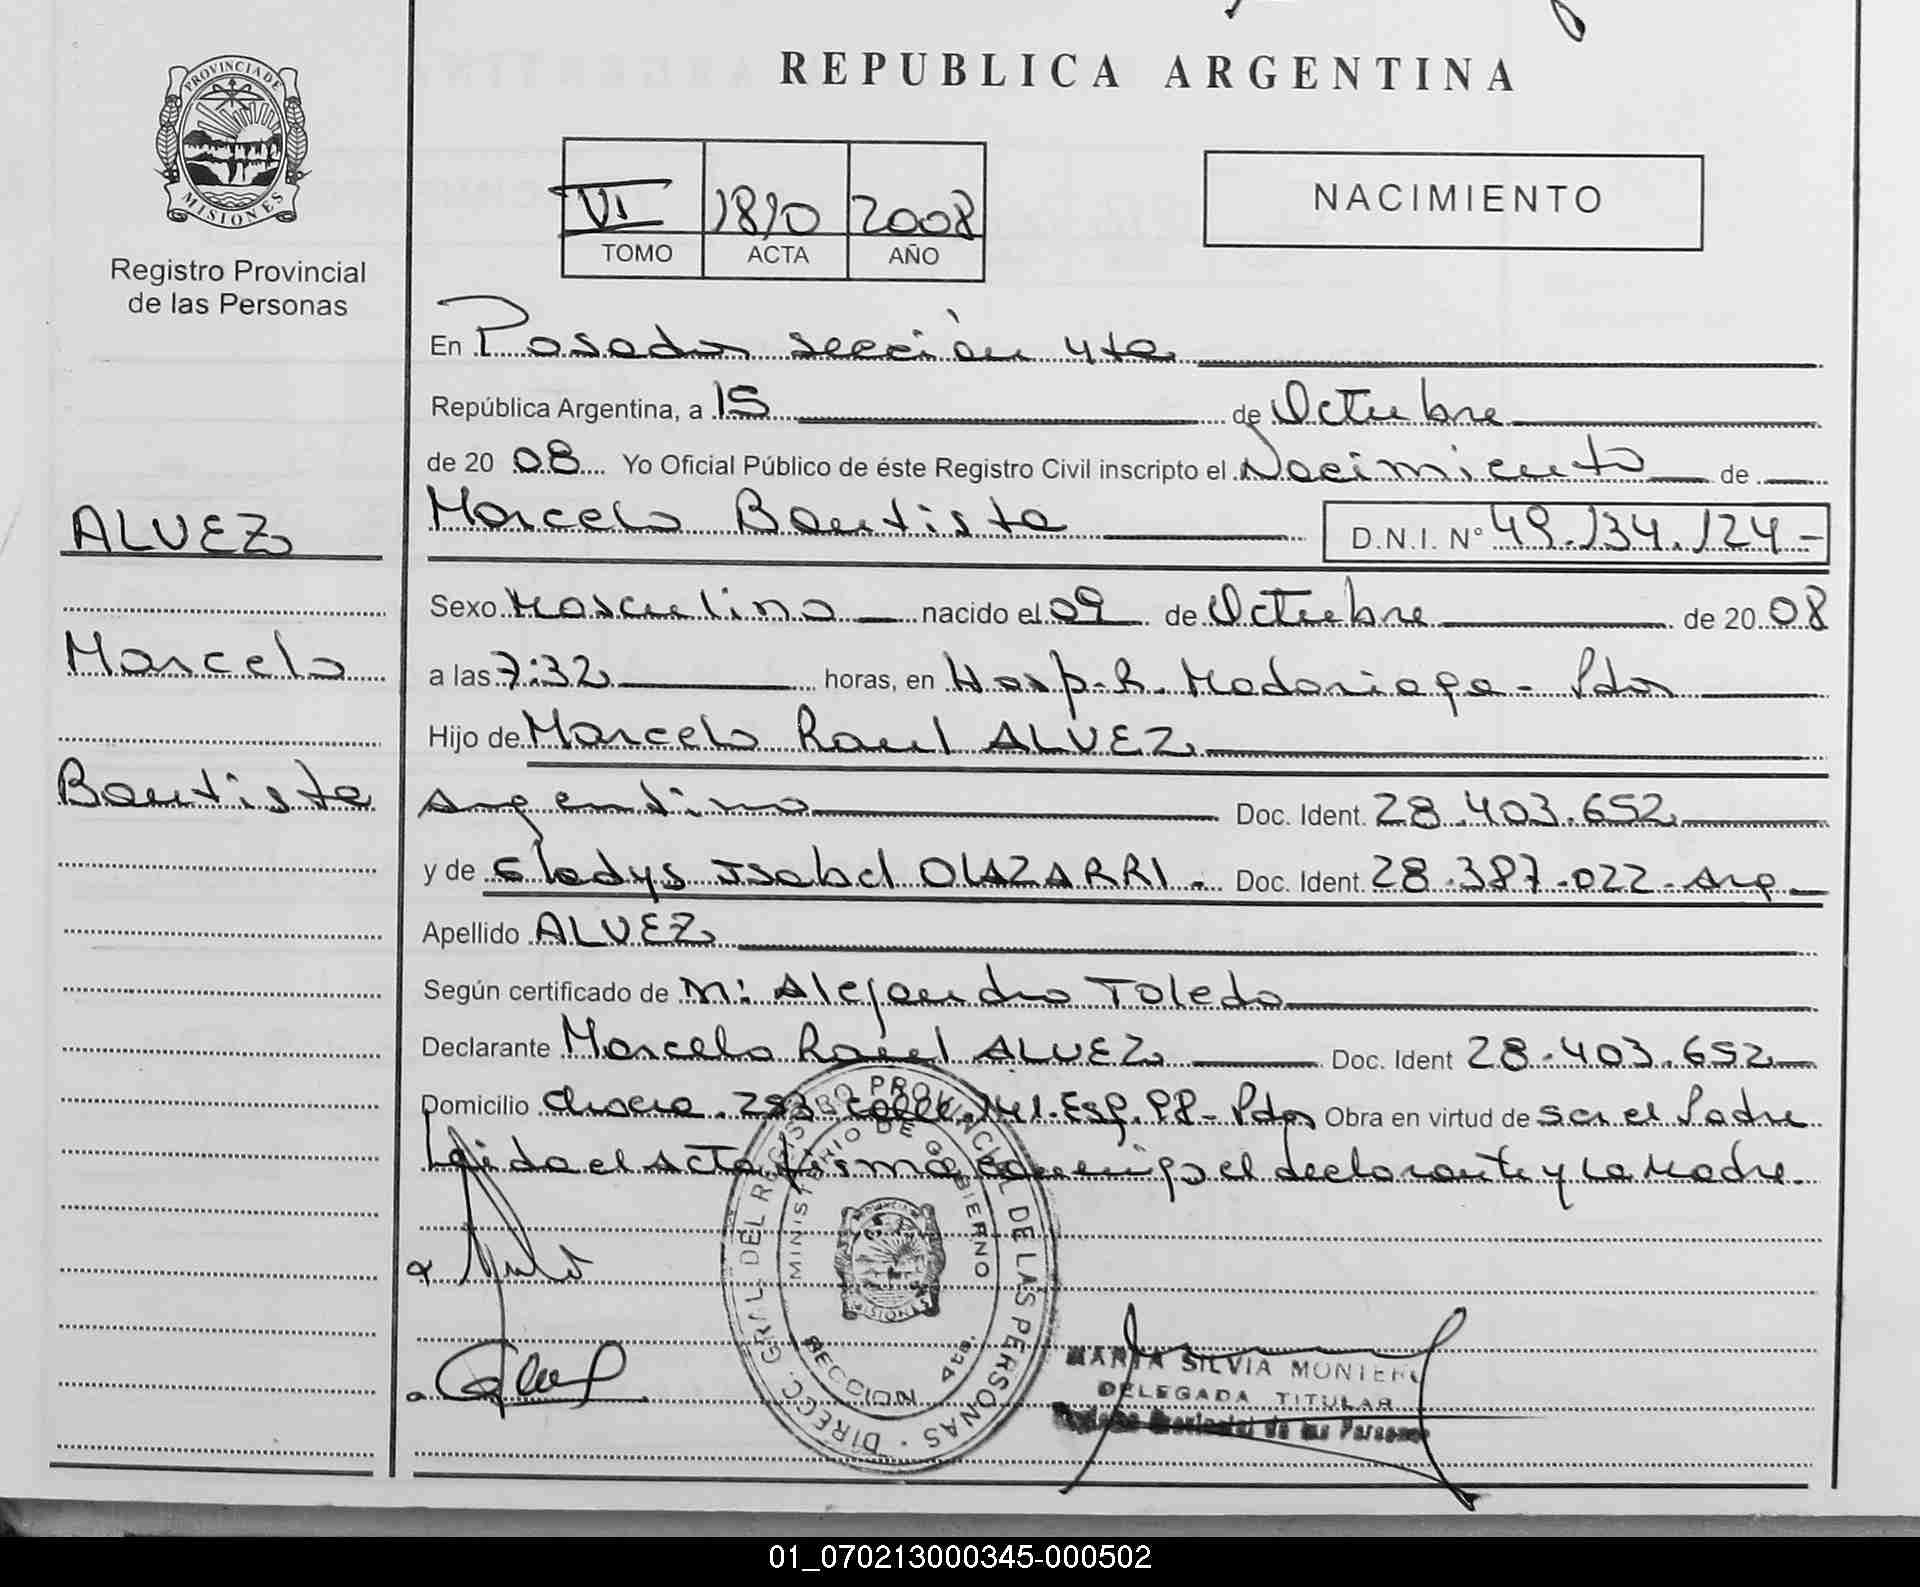 REPUBLICA ARGENTINA
PROVINCIA DE
MISIONES
Registro Provincial
de las Personas
VI 1810 2008
TOMO ACTA AÑO
NACIMIENTO
En Posadas sección 4ta
República Argentina, a 15 de Octubre
de 20 08 Yo Oficial Público de éste Registro Civil inscripto el Nacimiento de
ALVEZ
Marcelo
Bautista
Marcelo Bautista D.N.I. Nº 49.134.124-
Sexo Masculino nacido el 09 de Octubre de 20 08
a las 7:32 horas, en Hosp. R. Madariaga - Pdas
Hijo de Marcelo Raul ALVEZ
Argentino Doc. Ident. 28.403.652
y de Gladys Isabel OLAZARRI - Doc. Ident. 28.387.022 - Arg
Apellido ALVEZ
Según certificado de M: Alejandro Toledo
Declarante Marcelo Raul ALVEZ Doc. Ident 28.403.652
Domicilio Chacra. 283 calle 141. Esq. 98 - Pdas Obra en virtud de ser el Padre
Leida el Acta firma conmigo el declarante y la Madre.
DIRECC. GRAL. DEL REGISTRO PROVINCIAL DE LAS PERSONAS
MINISTERIO DE GOBIERNO
MISIONES
SECCION 4ta.
MARIA SILVIA MONTERO
DELEGADA TITULAR
Registro Provincial de las Personas
01_070213000345-000502